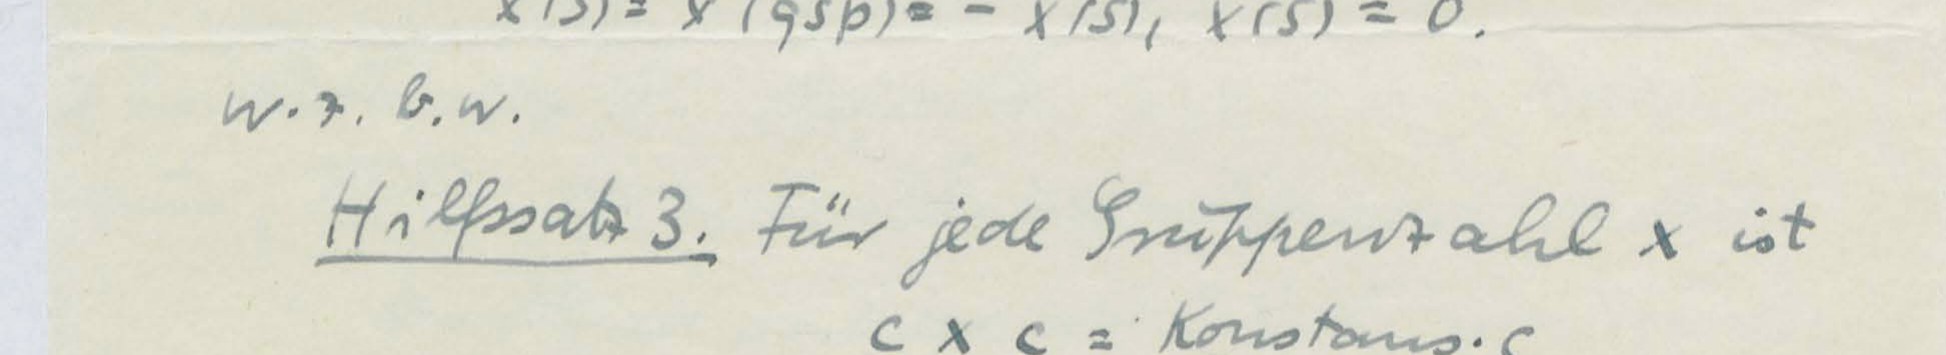 x(s) = x(qsp) = - x(s), x(s) = 0.
w. z. b. w.
Hilfssatz 3. Für jede Gruppenzahl x ist
c x c = Konstans · c